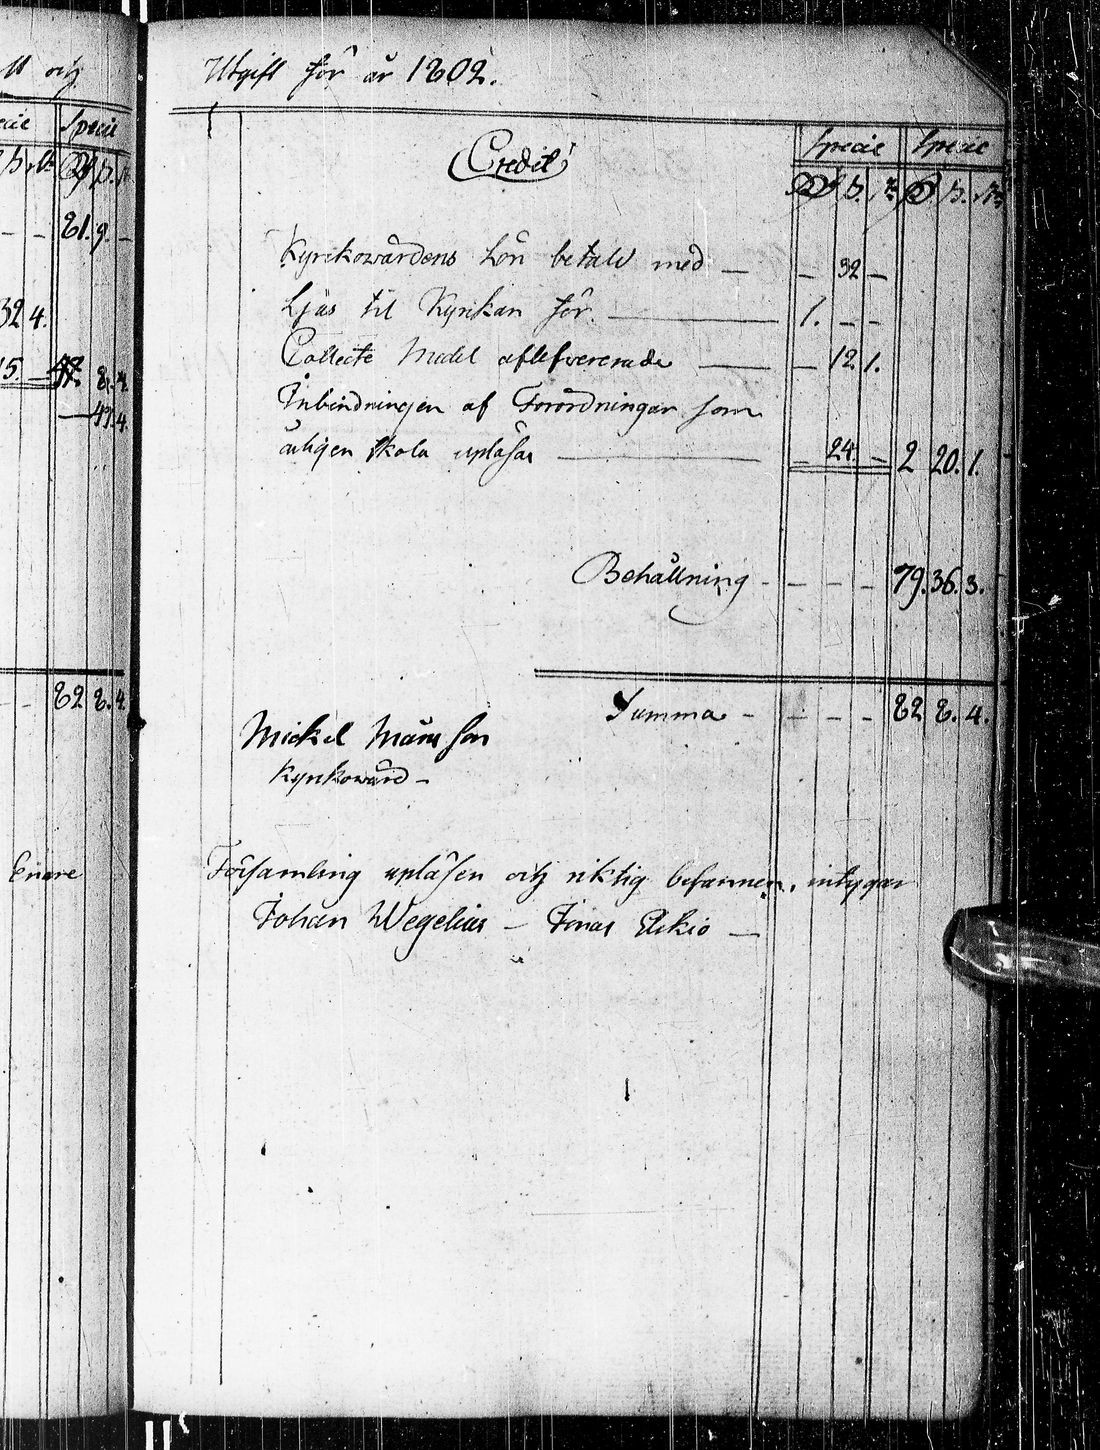 ll och
Specie
81. 9. –
32 4.
15. – 8. 4.
– 47. 4.
82 8. 4.
Enare
Utgift för år 1802.
Credit
Specie Specie
Kyrkowärdens Lön betald med – – 32 –
Ljus til Kyrkan för. – 1. – –
Collecte Medel aflefwererade – – 12. 1.
Inbindningen af Förordningar som
årligen skola upläsas – – 24. – 2 20. 1.
Behållning - – – – 79. 36. 3.
Summa – – – – 82 8. 4.
Mickel Månsson
Kyrkowärd –
Församling upläsen och riktig befunnen, intygar
Johan Wegelius – Jonas Elikiö –